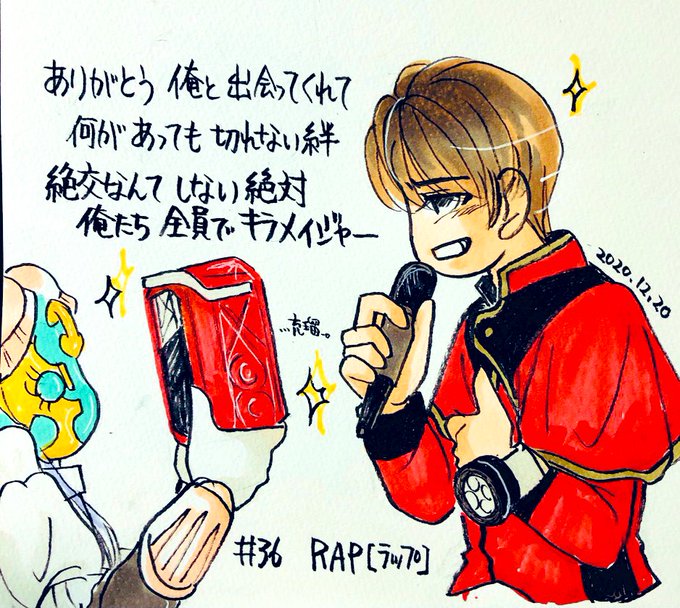 ありがとう 俺と 出会ってくれて
何が あっても 切れない絆
絶交なんて しない 絶対
俺たち 全員で キラメイジャー
2020.12.20
…充瑠…。
#36 RAP[ラップ]